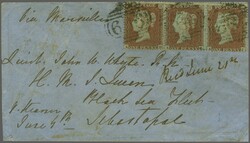 Via Marseilles
Lieut John W. Whyte R.N.
H. M. S. Queen
Black Sea Fleet
Sebastopol
Recd June 21st
June 9th